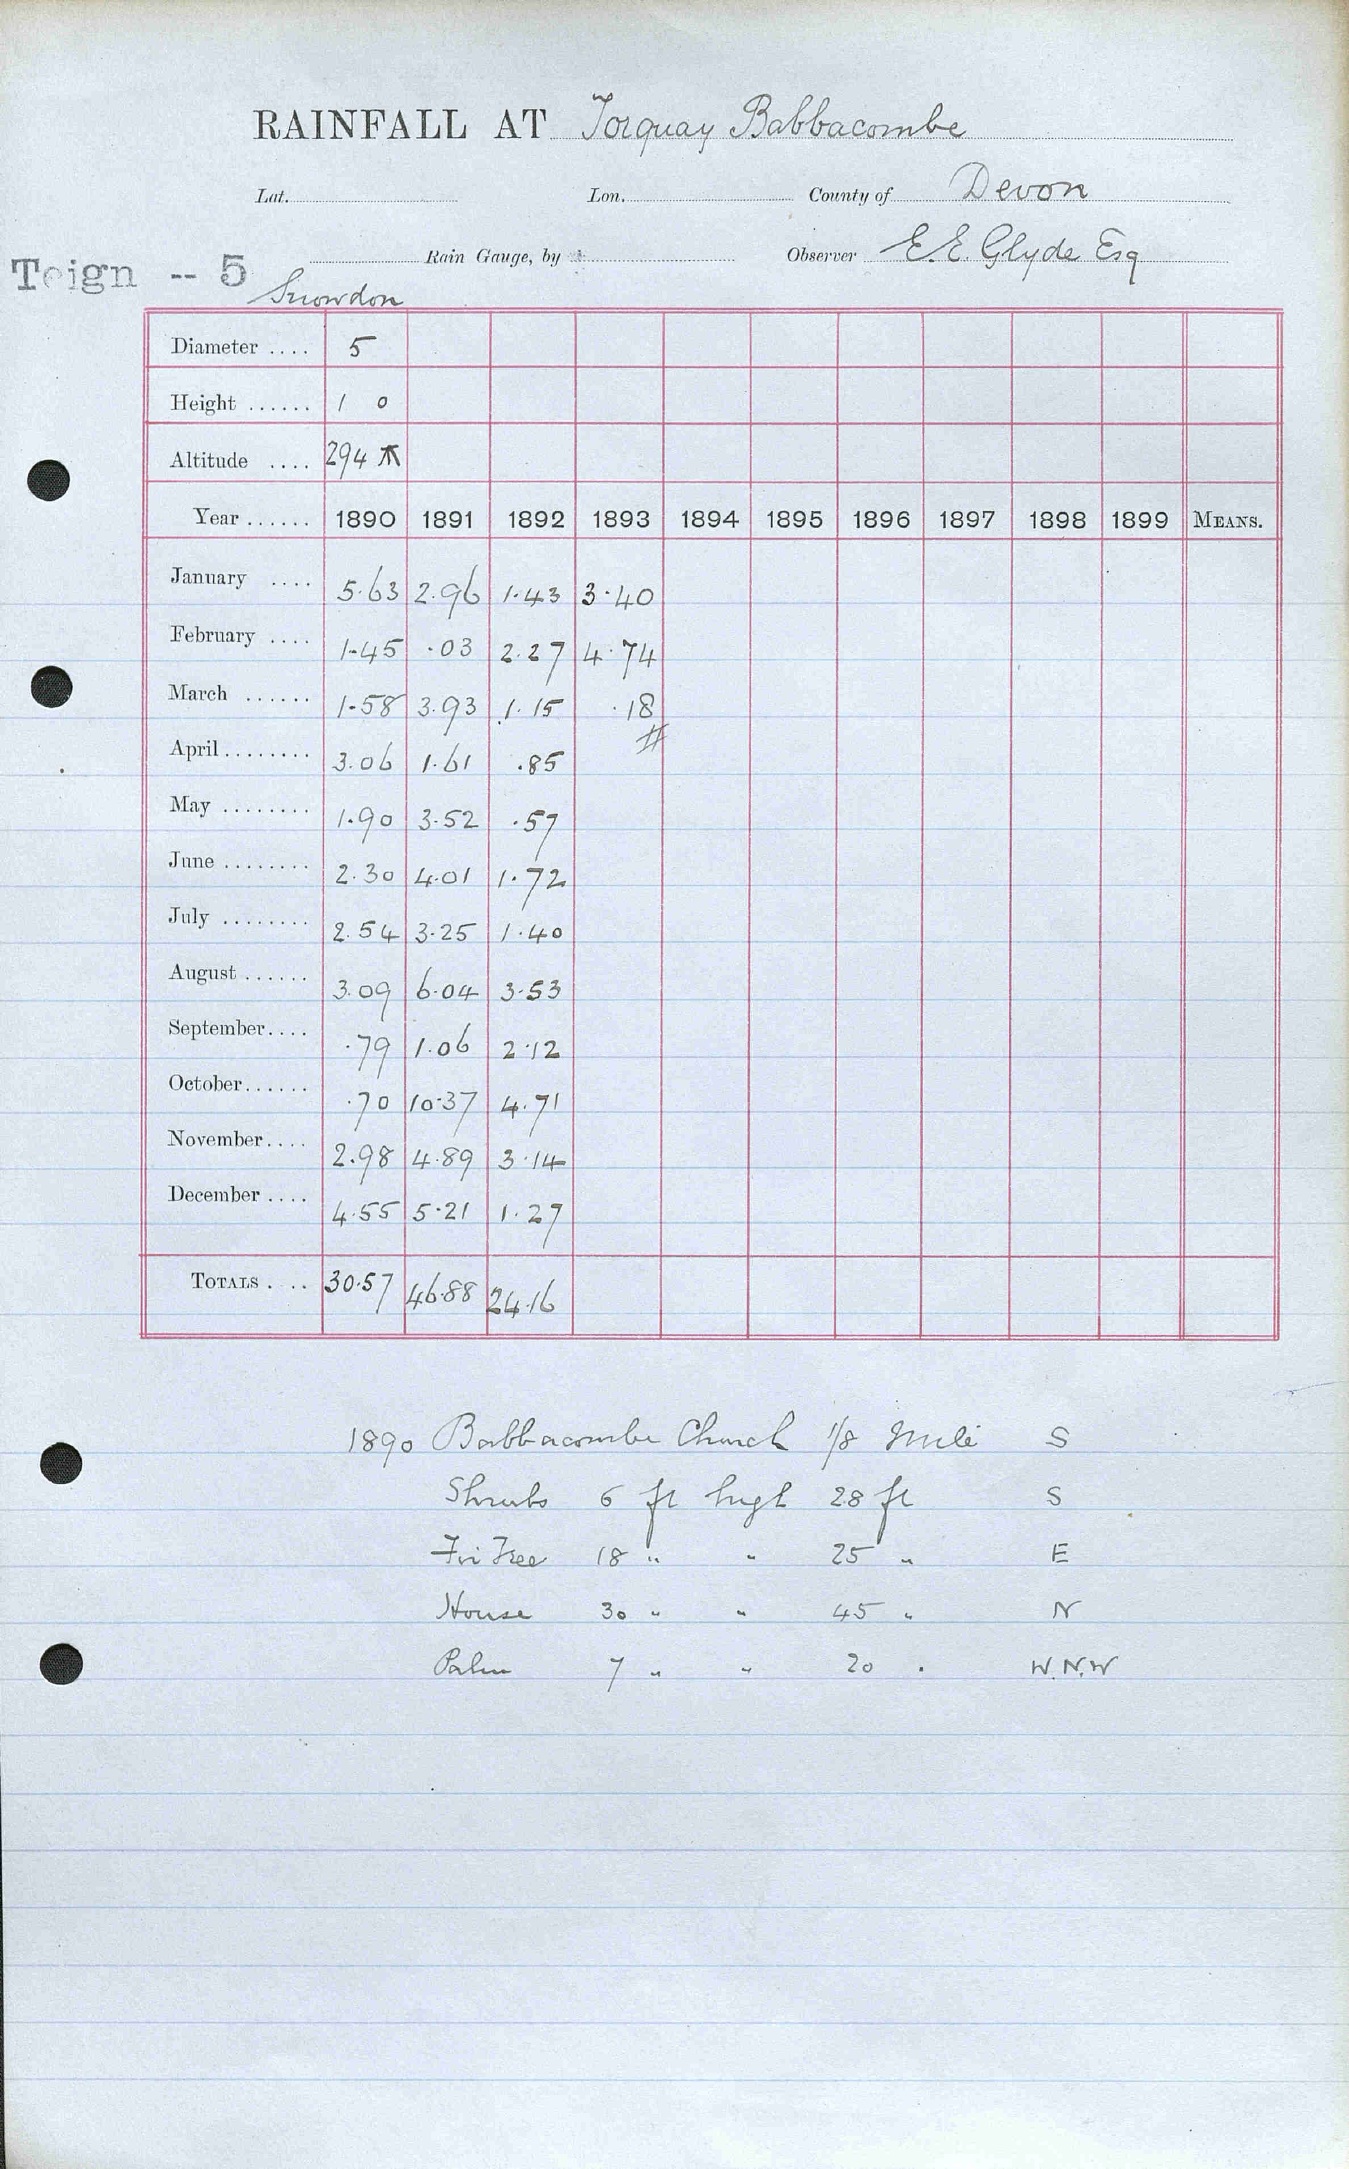 RAINFALL AT Torquay Babbacombe
Lat. Lon. County of Devon
Teign -- 5 Rain Gauge, by Observer E.E. Glyde Esq
Snowdon
Diameter .... 5
Height ...... 1 0
Altitude .... 294
Year ...... 1890 1891 1892 1893 1894 1895 1896 1897 1898 1899 MEANS.
January .... 5.63 2.96 1.43 3.40
February .... 1.45 .03 2.27 4.74
March ...... 1.58 3.93 1.15 .18
April ........ 3.06 1.61 .85
May ........ 1.90 3.52 .57
June ........ 2.30 4.01 1.72
July ........ 2.54 3.25 1.40
August ...... 3.09 6.04 3.53
September.... .79 1.06 2.12
October...... .70 10.37 4.71
November.... 2.98 4.89 3.14
December .... 4.55 5.21 1.27
TOTALS . .. 30.57 46.88 24.16
1890 Babbacombe Church 1/8 Mile S
Shrubs 6 ft high 28 ft S
Tree 18 " " 25 " E
House 30 " " 45 " N
Palm 7 " " 20 . W.N.W